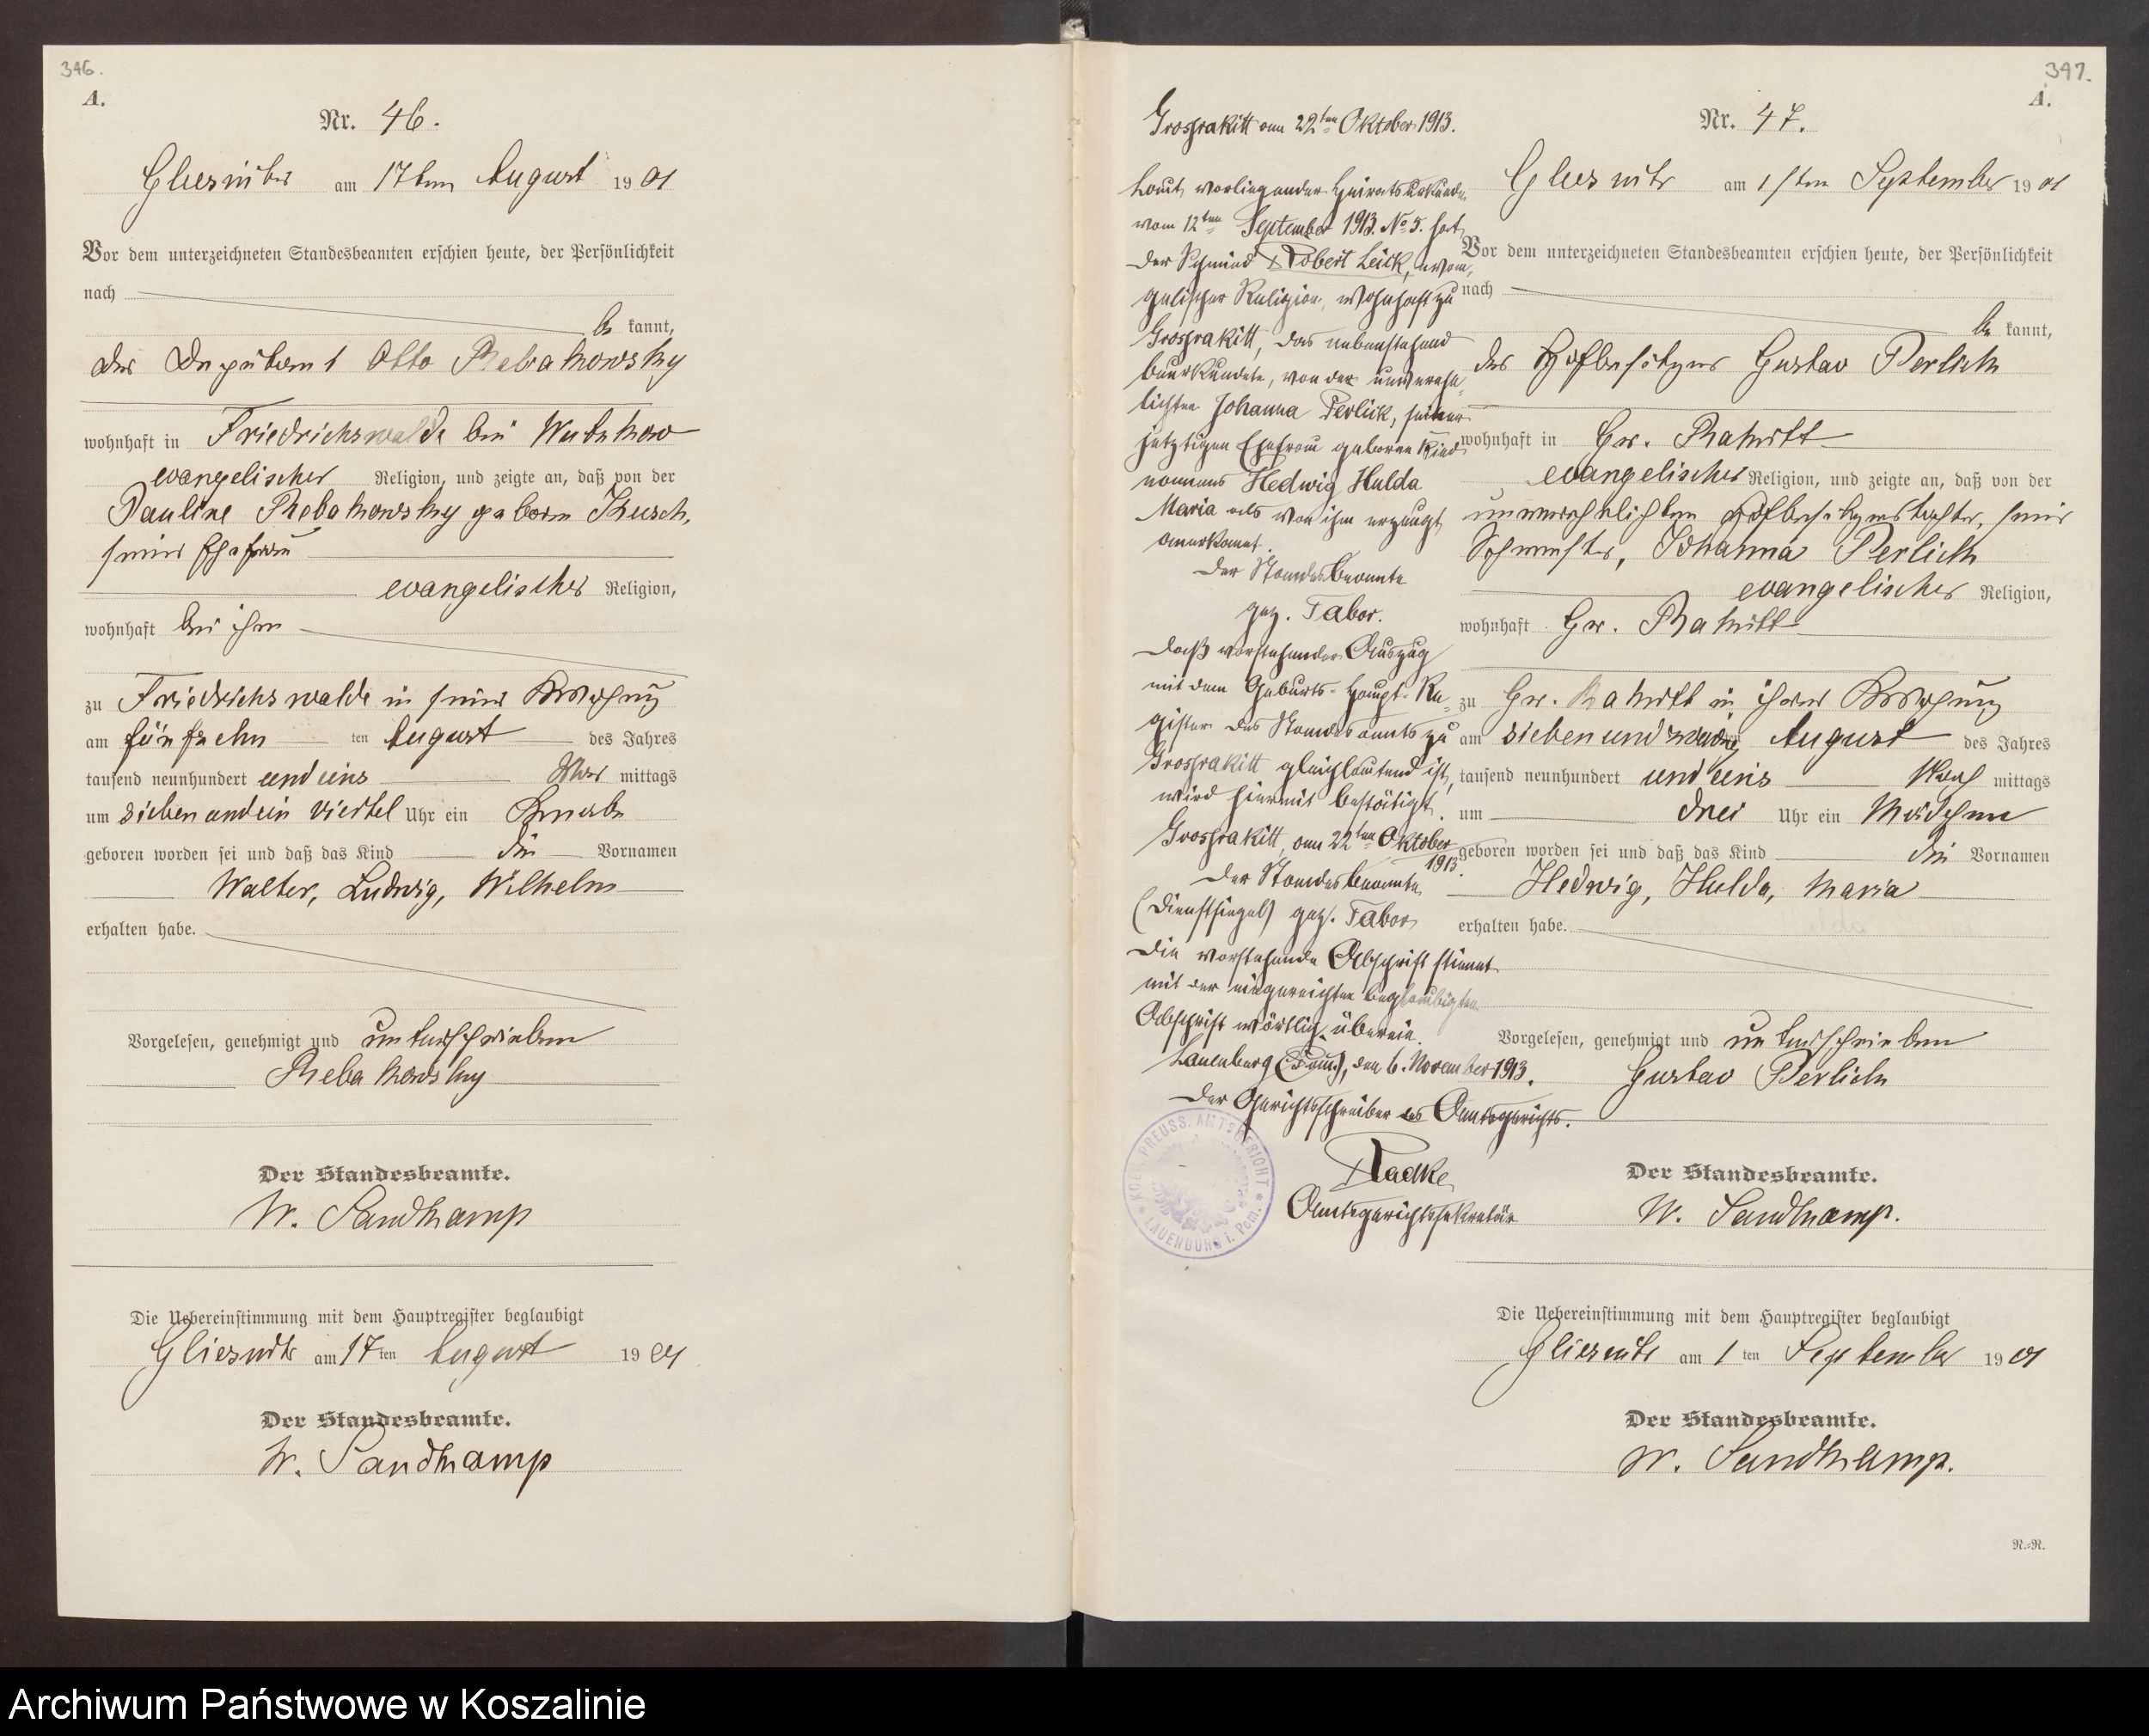 346.
A.
Nr. 46.
Gliesnitz am 17ten August 1901
Vor dem unterzeichneten Standesbeamten erschien heute, der Persönlichkeit
nach
be kannt,
der Deputant Otto Rebakowsky
wohnhaft in Friedrichswalde bei Wutzkow
evangelischer Religion, und zeigte an, daß von der
Pauline Rebakowsky geboren Kusch,
seiner Ehefrau
evangelischer Religion,
wohnhaft bei ihm
zu Friedrichswalde in seiner Wohnung
am fünfzehn ten August des Jahres
tausend neunhundert und eins Vor mittags
um sieben und ein viertel Uhr ein Knabe
geboren worden sei und daß das Kind die Vornamen
Walter, Ludwig, Wilhelm
erhalten habe.
Vorgelesen, genehmigt und unterschrieben
Rebakowsky
Der Standesbeamte.
W. Sandkamp
Die Uebereinstimmung mit dem Hauptregister beglaubigt
Gliesnitz am 17ten August 1901
Der Standesbeamte.
W. Sandkamp
Grossrakitt am 22ten Oktober 1913.
Laut vorliegender Heiratsurkunde
vom 12ten September 1913. No 5. hat
der Schmied Robert Leick, evan-
gelischer Religion, wohnhaft zu
Grossrakitt, das nebenstehend
beurkundete, von der unverehe-
lichten Johanna Perlick, seiner
jetztigen Ehefrau geborene Kind
namens Hedwig Hulda
Maria als von ihm erzeugt
anerkannt.
Der Standesbeamte
gez. Tabor.
Daß vorstehender Auszug
mit dem Geburts-Haupt-Re-
gister des Standesamts zu
Grossrakitt gleichlautend ist,
wird hiermit bestätigt.
Grossrakitt, am 22ten Oktober
1913.
Der Standesbeamte
(Dienstsiegel) gez. Tabor
Die vorstehende Abschrift stimmt
mit der eingereichten beglaubigten
Abschrift wörtlich überein.
Lauenburg (Pom.), den 6. November 1913.
Der Gerichtsschreiber des Amtsgerichts.
Radke
Amtsgerichtssekretär
KOEN. PREUSS. AMTSGERICHT * LAUENBURG i. Pom. *
397.
A.
Nr. 47.
Gliesnitz am 1sten September 1901
Vor dem unterzeichneten Standesbeamten erschien heute, der Persönlichkeit
nach
be kannt,
der Hofbesitzer Gustav Perlick
wohnhaft in Gr. Rakitt
evangelischer Religion, und zeigte an, daß von der
unverehelichten Hofbesitzerstochter, seine
Schwester, Johanna Perlick
evangelischer Religion,
wohnhaft Gr. Rakitt
zu Gr. Rakitt in ihrer Wohnung
am siebenundzwanzig August des Jahres
tausend neunhundert und eins Nach mittags
um drei Uhr ein Mädchen
geboren worden sei und daß das Kind die Vornamen
Hedwig, Hulda, Maria
erhalten habe.
Vorgelesen, genehmigt und unterschrieben
Gustav Perlick
Der Standesbeamte.
W. Sandkamp.
Die Uebereinstimmung mit dem Hauptregister beglaubigt
Gliesnitz am 1 ten September 1901
Der Standesbeamte.
W. Sandkamp.
N.-R.
Archiwum Państwowe w Koszalinie